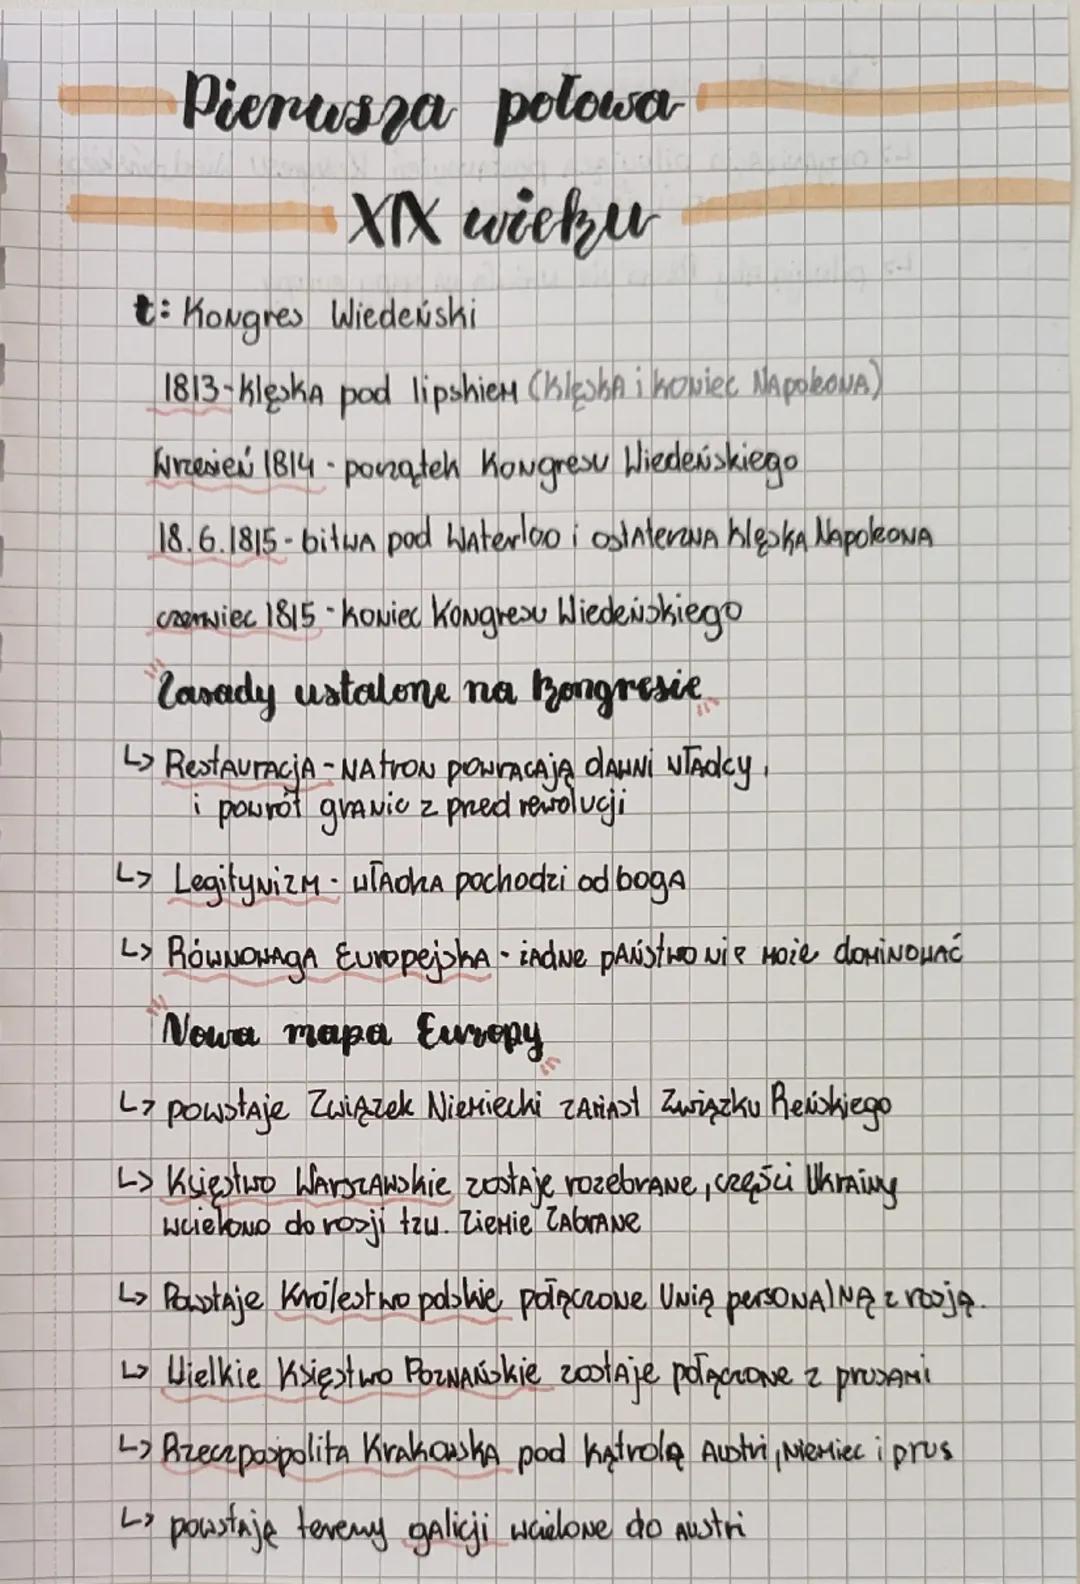 Pierwsza połowa
XIX wieku
t: Kongres Wiedeński
1813 - klęska pod lipskiem (klęska i koniec Napoleona)
Wrzesień 1814 - początek Kongresu Wiedeńskiego
18.6.1815 - bitwa pod Waterloo i ostateczna klęska Napoleona
czerwiec 1815 - koniec Kongresu Wiedeńskiego
Zasady ustalone na kongresie
↳ Restauracja - na tron powracają dawni władcy,
i powrót granic z przed rewolucji
↳ Legitynizm - władza pochodzi od boga
↳ Równowaga Europejska - żadne państwo nie może dominować
Nowa mapa Europy
↳ powstaje Związek Niemiecki zamiast Związku Reńskiego
↳ Księstwo Warszawskie zostaje rozebrane, części Ukrainy
wcielono do rosji tzw. Ziemie Zabrane
↳ Powstaje Królestwo polskie połączone Unią personalną z rosją.
↳ Wielkie Księstwo Poznańskie zostaje połączone z prusami
↳ Rzeczpospolita Krakowska pod kątrolą Austri, Niemiec i prus
↳ powstaję tereny galicji wcielone do Austri